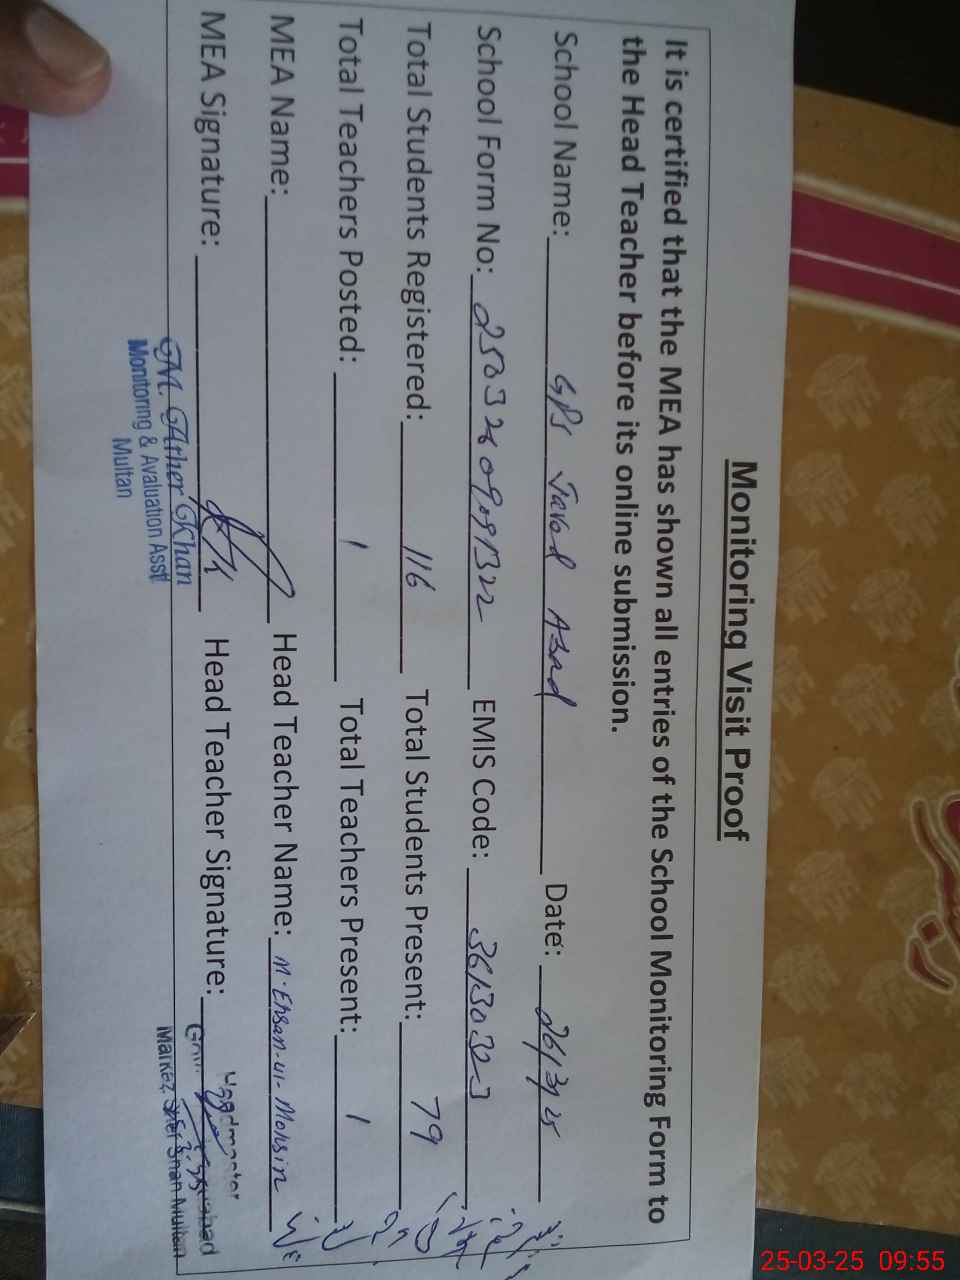 Monitoring Visit Proof
It is certified that the MEA has shown all entries of the School Monitoring Form to
the Head Teacher before its online submission.
School Name: GPS Javad Azad Date: 26/3/25
School Form No: EMIS Code: 36130323
Total Students Registered: 116 Total Students Present: 79
Total Teachers Posted: 1 Total Teachers Present: 1
MEA Name: Head Teacher Name: M. Ehsan-ul-Mohsin
MEA Signature: Head Teacher Signature:
M. Ather Khan
Monitoring & Avaluation Asst
Multan
Headmaster
Markaz Sher Shah Multan
25-03-25 09:55